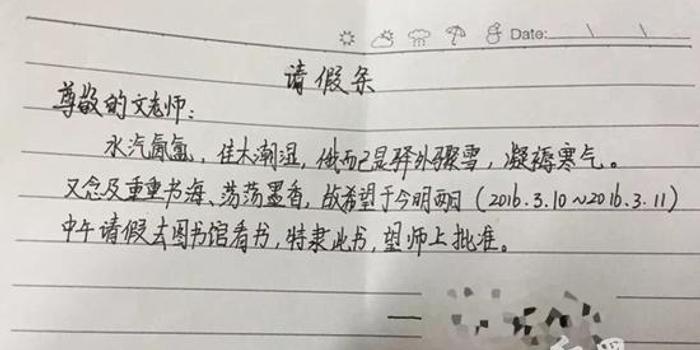 Date: \ \
请假条
尊敬的文老师：
水汽氤氲，佳木潮湿，俄而已是驿外骤雪，凝褥寒气。
又念及重重书海、荡荡墨香，故希望于今明两日（2016.3.10~2016.3.11）
中午请假去图书馆看书，特隶此书，望师上批准。
—